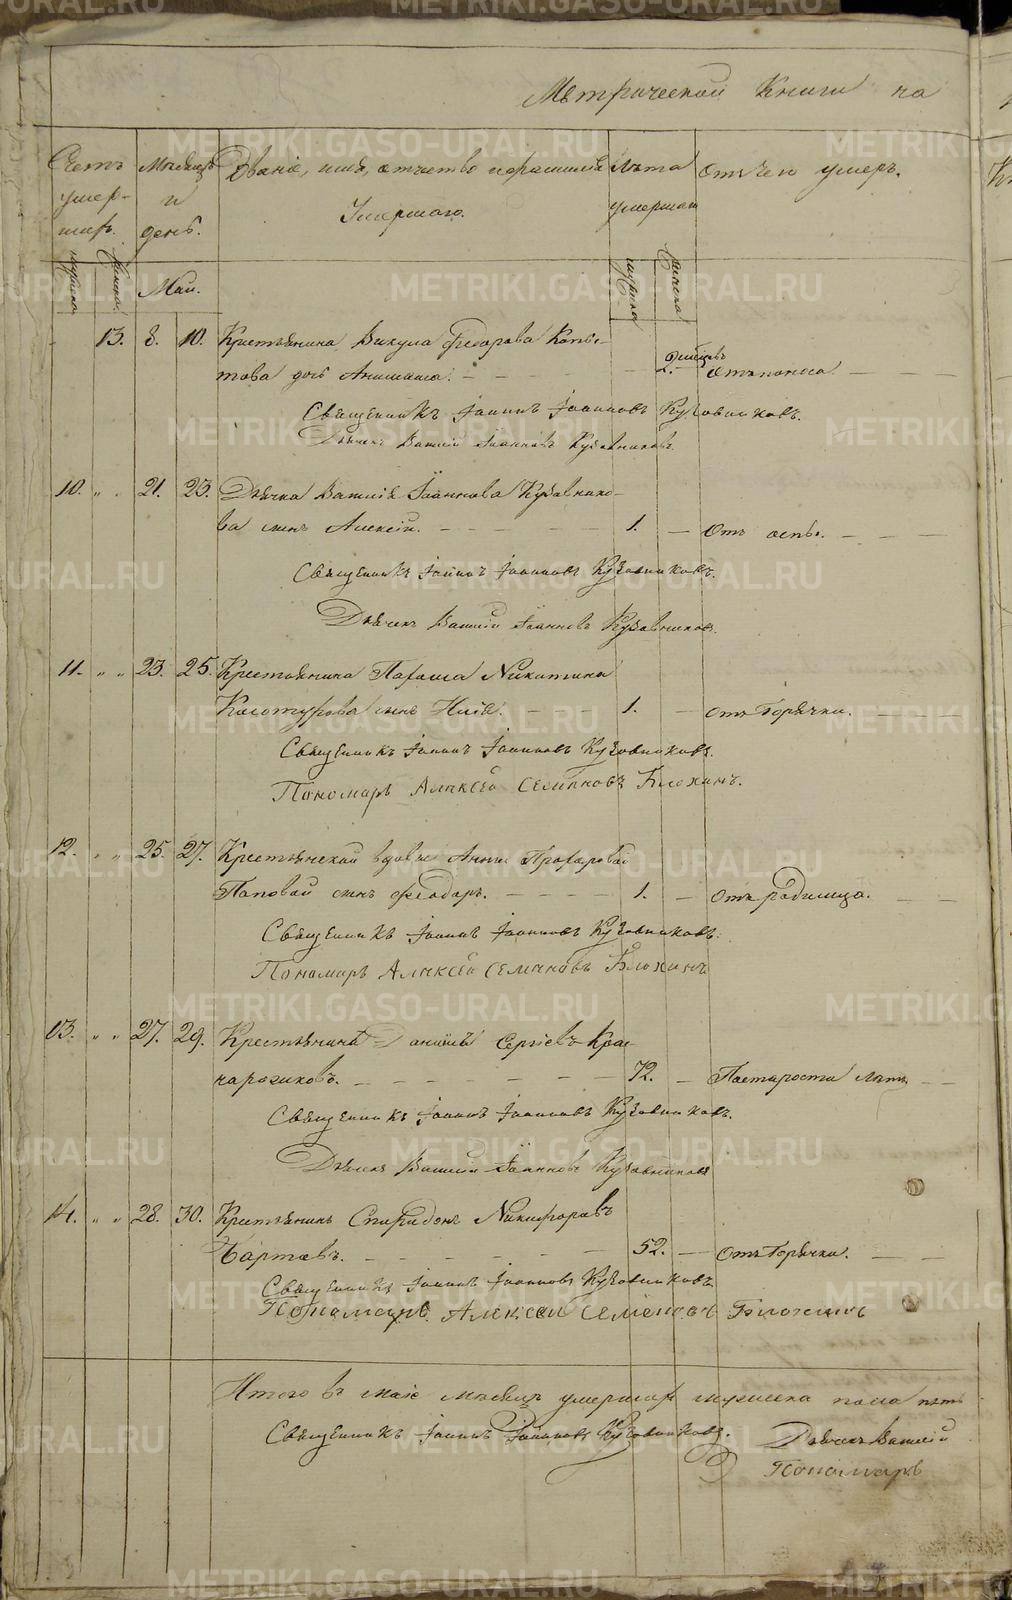 Метрической Книги на
Счетъ умершихъ.
Мѣсяцъ и день.
Званіе, имя, отчество и фамилія Умершаго.
Лѣта умершаго
Отъ чего умеръ.
мужска
женска
Май.
мужска
женска
13. 8. 10. Крестьянина Викула Федорова
това дочь 2. Отъ поноса.
Священникъ Іоаннъ Іоанновъ Кузовниковъ.
Дьячекъ Василій Іоанновъ Кузовниковъ.
10. " " 21. 23. Дьячка Василія Іоаннова Кузовнико-
ва сынъ Алексій. 1. Отъ оспы.
Священникъ Іоаннъ Іоанновъ Кузовниковъ.
Дьячекъ Василій Іоанновъ Кузовниковъ.
11. " " 23. 25. Крестьянина Никитина
сынъ Илія. 1. Отъ Горячки.
Священникъ Іоаннъ Іоанновъ Кузовниковъ.
Пономарь Алексѣй Семеновъ Блохинъ.
12. " " 25. 27. Крестьянской вдовы Анны
Поповой сынъ Феодоръ. 1. Отъ родимца.
Священникъ Іоаннъ Іоанновъ Кузовниковъ.
Пономарь Алексѣй Семеновъ Блохинъ
13. " " 27. 29. Крестьянинъ Даніилъ Сергіевъ
72. По старости лѣтъ
Священникъ Іоаннъ Іоанновъ Кузовниковъ.
Дьячекъ Василій Іоанновъ Кузовниковъ
14. " " 28. 30. Крестьянинъ Спиридонъ Никифоровъ
52. Отъ Горячки.
Священникъ Іоаннъ Іоанновъ Кузовниковъ
Пономарь Алексей Семеновъ Блохинъ
Итого въ маіе мѣсяцѣ умершихъ мужеска пола пять
Священникъ Іоаннъ Іоанновъ Кузовниковъ.
Дьячекъ Василій
Пономарь
METRIKI.GASO-URAL.RU